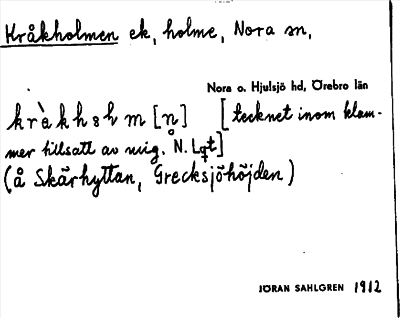 Kråkholmen ek, holme, Nora sn,
Nora o. Hjulsjö hd, Örebro län
krà̀khm [n̥] [tecknet inom klam-
mer tillsatt av mig. N. Lqt]
(å Skärhyttan, Grecksjöhöjden)
JÖRAN SAHLGREN 1912